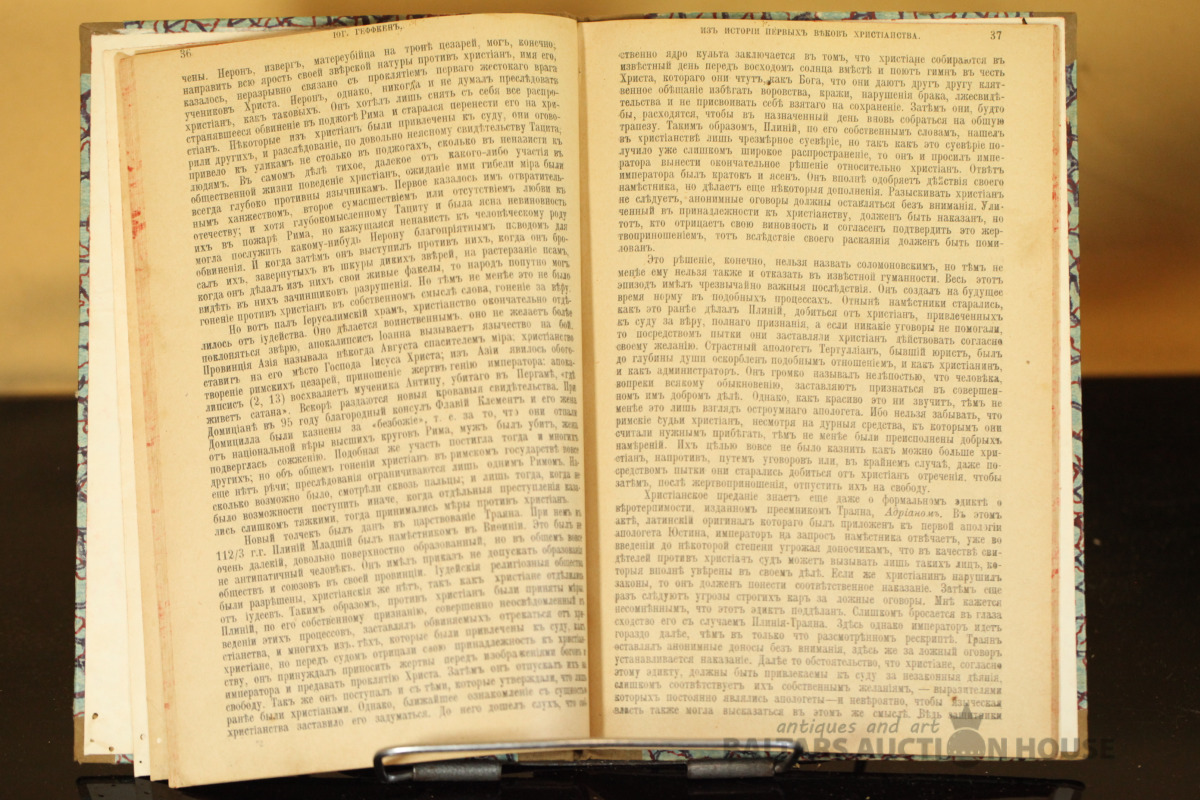 36
ЮГ. ГЕФФКЕНЪ,
чены. Неронъ, извергъ, матереубійца на тронѣ цезарей, могъ, конечно,
направить всю ярость своей звѣрской натуры противъ христіанъ, имя его,
казалось, неразрывно связано съ проклятіемъ перваго жестокаго врага
учениковъ Христа. Неронъ, однако, никогда и не думалъ преслѣдовать
христіанъ, какъ таковыхъ. Онъ хотѣлъ лишь снять съ себя все распро-
странявшееся обвиненіе въ поджогѣ Рима и старался перенести его на хри-
стіанъ. Нѣкоторые изъ христіанъ были привлечены къ суду, они огово-
рили другихъ, и разслѣдованіе, по довольно неясному свидѣтельству Тацита,
привело къ уликамъ не столько въ поджогахъ, сколько въ ненависти къ
людямъ. Въ самомъ дѣлѣ тихое, далекое отъ какого-либо участія въ
общественной жизни поведеніе христіанъ, ожиданіе ими гибели міра были
всегда глубоко противны язычникамъ. Первое казалось имъ отвратитель-
нымъ ханжествомъ, второе сумасшествіемъ или отсутствіемъ любви къ
отечеству; и хотя глубокомысленному Тациту и была ясна невиновность
ихъ въ пожарѣ Рима, но кажущаяся ненависть къ человѣческому роду
могла послужить какому-нибудь Нерону благопріятнымъ поводомъ для
обвиненія. И когда затѣмъ онъ выступилъ противъ нихъ, когда онъ бро-
салъ ихъ, завернутыхъ въ шкуры дикихъ звѣрей, на растерзаніе псамъ,
когда онъ дѣлалъ изъ нихъ свои живые факелы, то народъ попутно могъ
видѣть въ нихъ зачинщиковъ разрушенія. Но тѣмъ не менѣе это не было
гоненіе противъ христіанъ въ собственномъ смыслѣ слова, гоненіе за вѣру.
Но вотъ палъ Іерусалимскій храмъ, христіанство окончательно отдѣ-
лилось отъ іудейства. Оно дѣлается воинственнымъ, оно не желаетъ болѣе
поклоняться звѣрю, апокалипсисъ Іоанна вызываетъ язычество на бой.
Провинція Азія называла нѣкогда Августа спасителемъ міра; христіанство
ставитъ на его мѣсто Господа Іисуса Христа; изъ Азіи явилось обого-
твореніе римскихъ цезарей, приношеніе жертвъ генію императора; апока-
липсисъ (2, 13) восхваляетъ мученика Антипу, убитаго въ Пергамѣ, «гдѣ
живетъ сатана». Вскорѣ раздаются новыя кровавыя свидѣтельства. При
Домиціанѣ въ 95 году благородный консулъ Флавій Клементъ и его жена
Домицилла были казнены за «безбожіе», т. е. за то, что они отпали
отъ національной вѣры высшихъ круговъ Рима, мужъ былъ убитъ, жена
подверглась сожженію. Подобная же участь постигла тогда и многихъ
другихъ; но объ общемъ гоненіи христіанъ въ римскомъ государствѣ вовсе
еще нѣтъ рѣчи; преслѣдованія ограничиваются лишь однимъ Римомъ. На-
сколько возможно было, смотрѣли сквозь пальцы; и лишь тогда, когда не
было возможности поступить иначе, когда отдѣльныя преступленія каза-
лись слишкомъ тяжкими, тогда принимались мѣры противъ христіанъ.
Новый толчекъ былъ данъ въ царствованіе Траяна. При немъ въ
112/3 г.г. Плиній Младшій былъ намѣстникомъ въ Вифиніи. Это былъ не
очень далекій, довольно поверхностно образованный, но въ общемъ вовсе
не антипатичный человѣкъ. Онъ имѣлъ приказъ не допускать образованія
обществъ и союзовъ въ своей провинціи. Іудейскія религіозныя общества
были разрѣшены, христіанскія же нѣтъ, такъ какъ христіане отдѣлились
отъ іудеевъ. Такимъ образомъ, противъ христіанъ были приняты мѣры.
Плиній, по его собственному признанію, совершенно неосвѣдомленный въ
веденіи этихъ процессовъ, заставлялъ обвиняемыхъ отрекаться отъ хри-
стіанства, и многихъ изъ тѣхъ, которые были привлечены къ суду, какъ
христіане, но передъ судомъ отрицали свою принадлежность къ христіан-
ству, онъ принуждалъ приносить жертвы передъ изображеніями боговъ и
императора и предавать проклятію Христа. Затѣмъ онъ отпускалъ ихъ на
свободу. Такъ же онъ поступалъ и съ тѣми, которые утверждали, что
ранѣе были христіанами. Однако, ближайшее ознакомленіе съ сущностью
христіанства заставило его задуматься. До него дошелъ слухъ, что
ИЗЪ ИСТОРІИ ПЕРВЫХЪ ВѢКОВЪ ХРИСТІАНСТВА.
37
ственно ядро культа заключается въ томъ, что христіане собираются въ
извѣстный день передъ восходомъ солнца вмѣстѣ и поютъ гимнъ въ честь
Христа, котораго они чтутъ, какъ Бога, что они даютъ другъ другу клят-
венное обѣщаніе избѣгать воровства, кражи, нарушенія брака, лжесвидѣ-
тельства и не присвоивать себѣ взятаго на сохраненіе. Затѣмъ они, будто
бы, расходятся, чтобы въ назначенный день вновь собраться на общую
трапезу. Такимъ образомъ, Плиній, по его собственнымъ словамъ, нашелъ
въ христіанствѣ лишь чрезмѣрное суевѣріе, но такъ какъ это суевѣріе по-
лучило уже слишкомъ широкое распространеніе, то онъ и просилъ импе-
ратора вынести окончательное рѣшеніе относительно христіанъ. Отвѣтъ
императора былъ кратокъ и ясенъ. Онъ вполнѣ одобряетъ дѣйствія своего
намѣстника, но дѣлаетъ еще нѣкоторыя дополненія. Разыскивать христіанъ
не слѣдуетъ, анонимные оговоры должны оставляться безъ вниманія. Ули-
ченный въ принадлежности къ христіанству, долженъ быть наказанъ, но
тотъ, кто отрицаетъ свою виновность и согласенъ подтвердить это жер-
твоприношеніемъ, тотъ вслѣдствіе своего раскаянія долженъ быть поми-
лованъ.
Это рѣшеніе, конечно, нельзя назвать соломоновскимъ, но тѣмъ не
менѣе ему нельзя также и отказать въ извѣстной гуманности. Весь этотъ
эпизодъ имѣлъ чрезвычайно важныя послѣдствія. Онъ создалъ на будущее
время норму въ подобныхъ процессахъ. Отнынѣ намѣстники старались,
какъ это ранѣе дѣлалъ Плиній, добиться отъ христіанъ, привлеченныхъ
къ суду за вѣру, полнаго признанія, а если никакіе уговоры не помогали,
то посредствомъ пытки они заставляли христіанъ дѣйствовать согласно
своему желанію. Страстный апологетъ Тертулліанъ, бывшій юристъ, былъ
до глубины души оскорбленъ подобнымъ отношеніемъ, и какъ христіанинъ,
и какъ администраторъ. Онъ громко называлъ нелѣпостью, что человѣка,
вопреки всякому обыкновенію, заставляютъ признаться въ совершен-
номъ имъ добромъ дѣлѣ. Однако, какъ красиво это ни звучитъ, тѣмъ не
менѣе это лишь взглядъ остроумнаго апологета. Ибо нельзя забывать, что
римскіе судьи христіанъ, несмотря на дурныя средства, къ которымъ они
считали нужнымъ прибѣгать, тѣмъ не менѣе были преисполнены добрыхъ
намѣреній. Ихъ цѣлью вовсе не было казнить какъ можно больше хри-
стіанъ, напротивъ, путемъ уговоровъ или, въ крайнемъ случаѣ, даже по-
средствомъ пытки они старались добиться отъ христіанъ отреченія, чтобы
затѣмъ, послѣ жертвоприношенія, отпустить ихъ на свободу.
Христіанское преданіе знаетъ еще даже о формальномъ эдиктѣ о
вѣротерпимости, изданномъ преемникомъ Траяна, Адріаномъ. Въ этомъ
актѣ, латинскій оригиналъ котораго былъ приложенъ къ первой апологіи
апологета Юстина, императоръ на запросъ намѣстника отвѣчаетъ, уже во
введеніи до нѣкоторой степени угрожая доносчикамъ, что въ качествѣ сви-
дѣтелей противъ христіанъ судъ можетъ вызывать лишь такихъ лицъ, ко-
торыя вполнѣ увѣрены въ своемъ дѣлѣ. Если же христіанинъ нарушилъ
законы, то онъ долженъ понести соотвѣтственное наказаніе. Затѣмъ еще
разъ слѣдуютъ угрозы строгихъ каръ за ложные оговоры. Мнѣ кажется
несомнѣннымъ, что этотъ эдиктъ поддѣланъ. Слишкомъ бросается въ глаза
сходство его съ случаемъ Плинія-Траяна. Здѣсь однако императоръ идетъ
гораздо далѣе, чѣмъ въ только что разсмотрѣнномъ рескриптѣ. Траянъ
оставлялъ анонимные доносы безъ вниманія, здѣсь же за ложный оговоръ
устанавливается наказаніе. Далѣе то обстоятельство, что христіане, согласно
этому эдикту, должны быть привлекаемы къ суду за незаконныя дѣянія,
слишкомъ соотвѣтствуетъ ихъ собственнымъ желаніямъ, — выразителями
которыхъ постоянно являлись апологеты—и невѣроятно, чтобы языческая
власть также могла высказаться въ этомъ же смыслѣ. Вѣдь
antiques and art
BALZARS AUCTION HOUSE